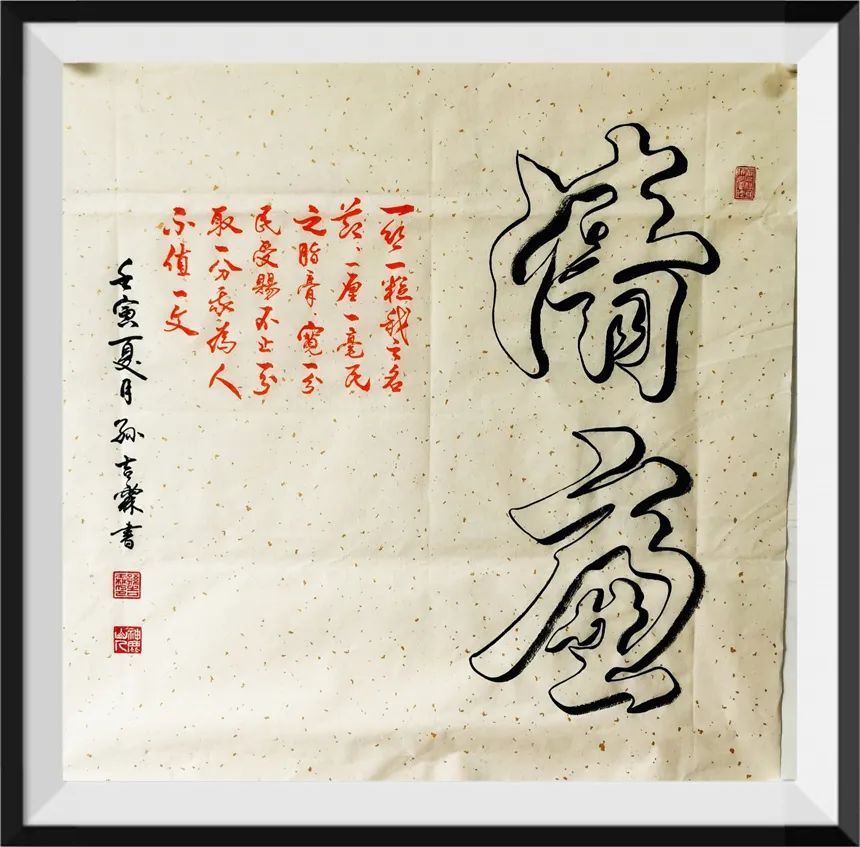 清廉
一丝一粒我之名
节、一厘一毫民
之脂膏、寬一分
民受賜不止一分
取一分我為人
不值一文
壬寅夏月 孫吉霖書